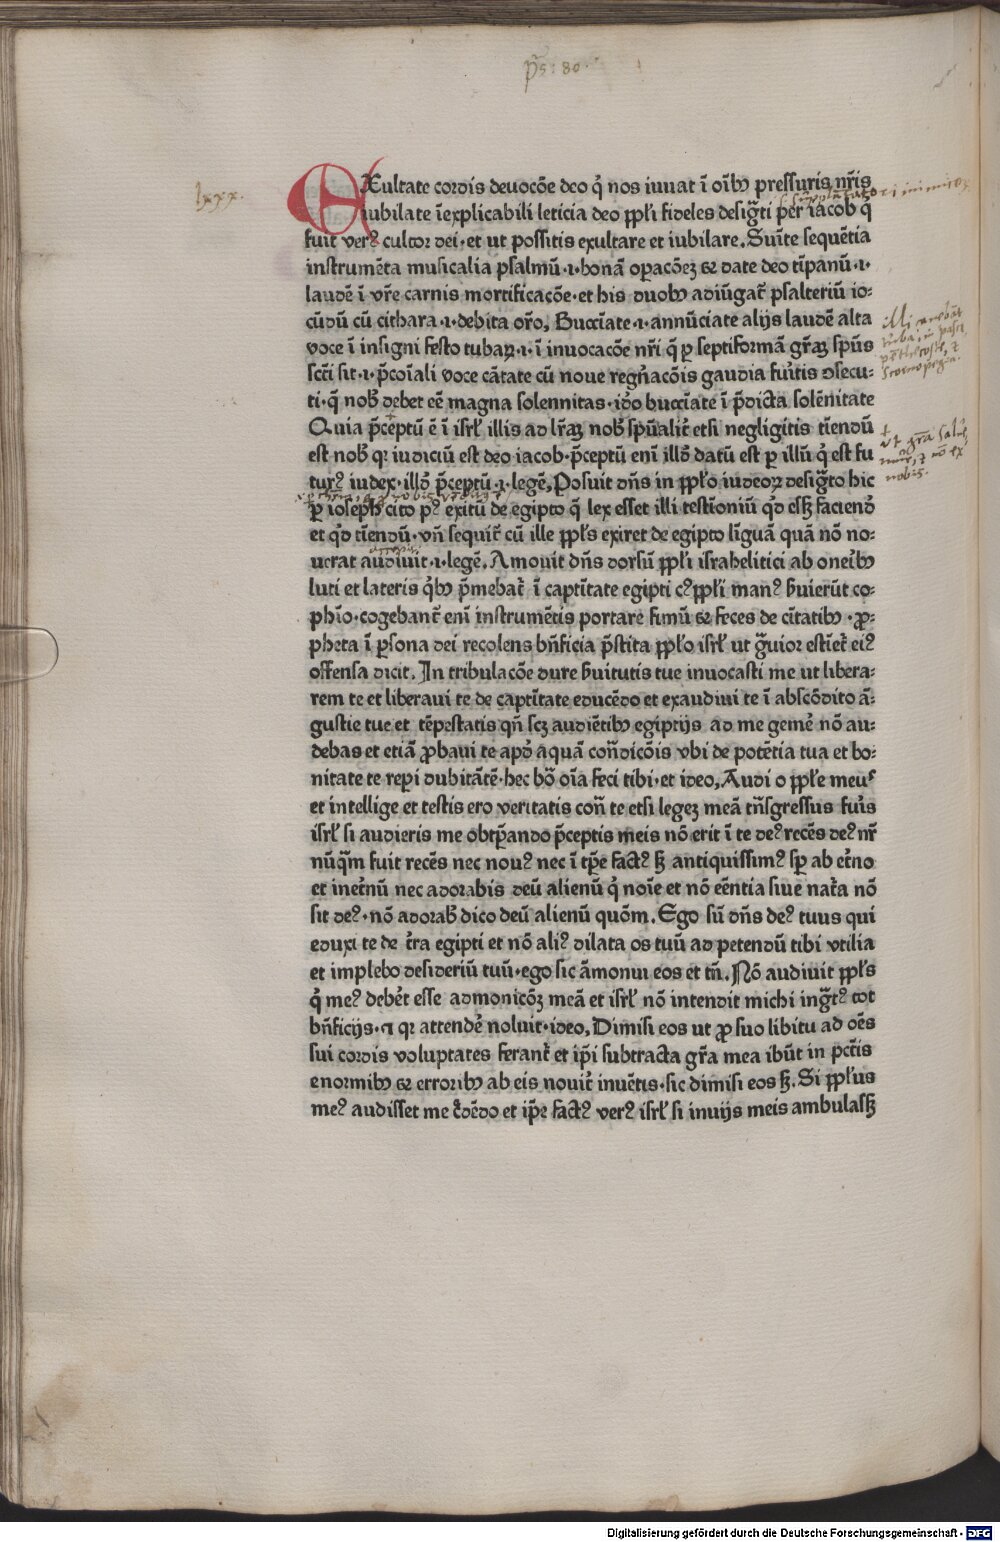 ps: 80.
lxxx.
EXultate cordis deuocōe deo q̇ nos iuuat ī oībꝰ pressuris nr̄is
iubilate īexplicabili leticia deo ppl̄i fideles desig̃ti per iacob q̄
fuit verꝰ cultor dei·et ut possitis exultare et iubilare. Sūite sequētia
instrumēta musicalia psalmū·i·bonā oꝑacōeꝫ & date deo tīpanū·i·
laudē ī vr̄e carnis mortificacōe·et his duobꝰ adiūgat᷑ psalteriū io:
cūdū cū cithara·i·debita or̄o, Bucciate·i·annūciate alijs laudē alta
voce ī insigni festo tubaꝝ·i·ī inuocacōe nr̄i q̄ ꝑ septiformā gr̄aꝫ spūs
scti sit·i·p̄coīali voce cātate cū noue regn̄acōis gaudia fuitis ↄsecu:
illi canebāt
ti·q̄ nob̄ debet eē magna solennitas·ido bucciate ī p̄dicta solēnitate
Quia p̄ceptū ē ī isrl̄ illis ad lr̄aꝫ nob̄ spūalit᷑ etsi negligitis tīendū
est nob̄ qꝛ iudiciū est deo iacob·p̄ceptū enī illō datū est ꝑ illū q̇ est fu
ut gr̄a salu̅
nobis.
turꝰ iudex·illō p̄ceptū·i·legē, Posuit dn̄s in ppl̄o iudeoꝝ desig̃to hic
ꝑ ioseph cito pꝰ exitū de egipto q̄ lex esset illi testīoniū qd̄ esꝫ faciendō
et qd̄ tīendū·vn̄ sequit᷑ cū ille ppl̄s exiret de egipto līguā quā nō no:
uerat audiuit·i·legē. Amouit dn̄s dorsū ppl̄i israhelitici ab oneibꝰ
luti et lateris qḃꝰ p̄mebat᷑ ī captītate egipti cꝰ ppl̄i manꝰ ƀuierūt co:
phīo·cogebant᷑ enī instrumētis portare fimū & feces de cītatibꝰ·ꝓ:
pheta ī ꝑsona dei recolens bn̄ficia p̄stita ppl̄o isrl̄ ut g̃uior estīet᷑ eiꝰ
offensa dicit. In tribulacōe dure ƀuitutis tue inuocasti me ut libera:
rem te et liberaui te de captītate educēdo et exaudiui te ī abscōdito ā:
gustie tue et tēpestatis qn̄ scꝫ audiētibꝰ egiptijs ad me geme᷑ nō au:
debas et etiā ꝓbaui te apd̄ aquā con̄dicōis vbi de potētia tua et bo:
nitate te reperi dubitātē·hec bō oīa feci tibi·et ideo, Audi o ppl̄e meus
et intellige et testis ero veritatis con̄ te etsi legeꝫ meā tn̄sgressus fuis
isrl̄ si audieris me obtꝑando p̄ceptis meis nō erit ī te deꝰ recēs deꝰ nr̄
nūq̄m fuit recēs nec nouꝰ nec ī tꝑe factꝰ sꝫ antiquissimꝰ sꝑ ab et᷑no
et inet᷑nū nec adorabis deū alienū q̇ noīe et nō eēntia siue nat᷑a nō
sit deꝰ·nō adorab̄ dico deū alienū quōm. Ego sū dn̄s deꝰ tuus qui
eduxi te de t᷑ra egipti et nō aliꝰ dilata os tuū ad petendū tibi vtilia
et implebo desideriū tuū·ego sic āmonui eos et tn̄. Nō audiuit ppl̄s
q̇ meꝰ debet᷑ esse admonicōꝫ meā et isrl̄ nō intendit michi ing̃tꝰ tot
bn̄ficijs·⁊ qꝛ attende᷑ noluit·ideo, Dimisi eos ut ꝓ suo libitu ad oēs
sui cordis voluptates ferant᷑ et ip̄i subtracta gr̄a mea ibūt in pctīs
enormibꝰ & erroribꝰ ab eis nouit᷑ inuētis·sic dimisi eos sꝫ. Si ppl̄us
meꝰ audisset me c᷑dēdo et ip̄e factꝰ verꝰ isrl̄ si inuijs meis ambulasꝫ
Digitalisierung gefördert durch die Deutsche Forschungsgemeinschaft - DFG